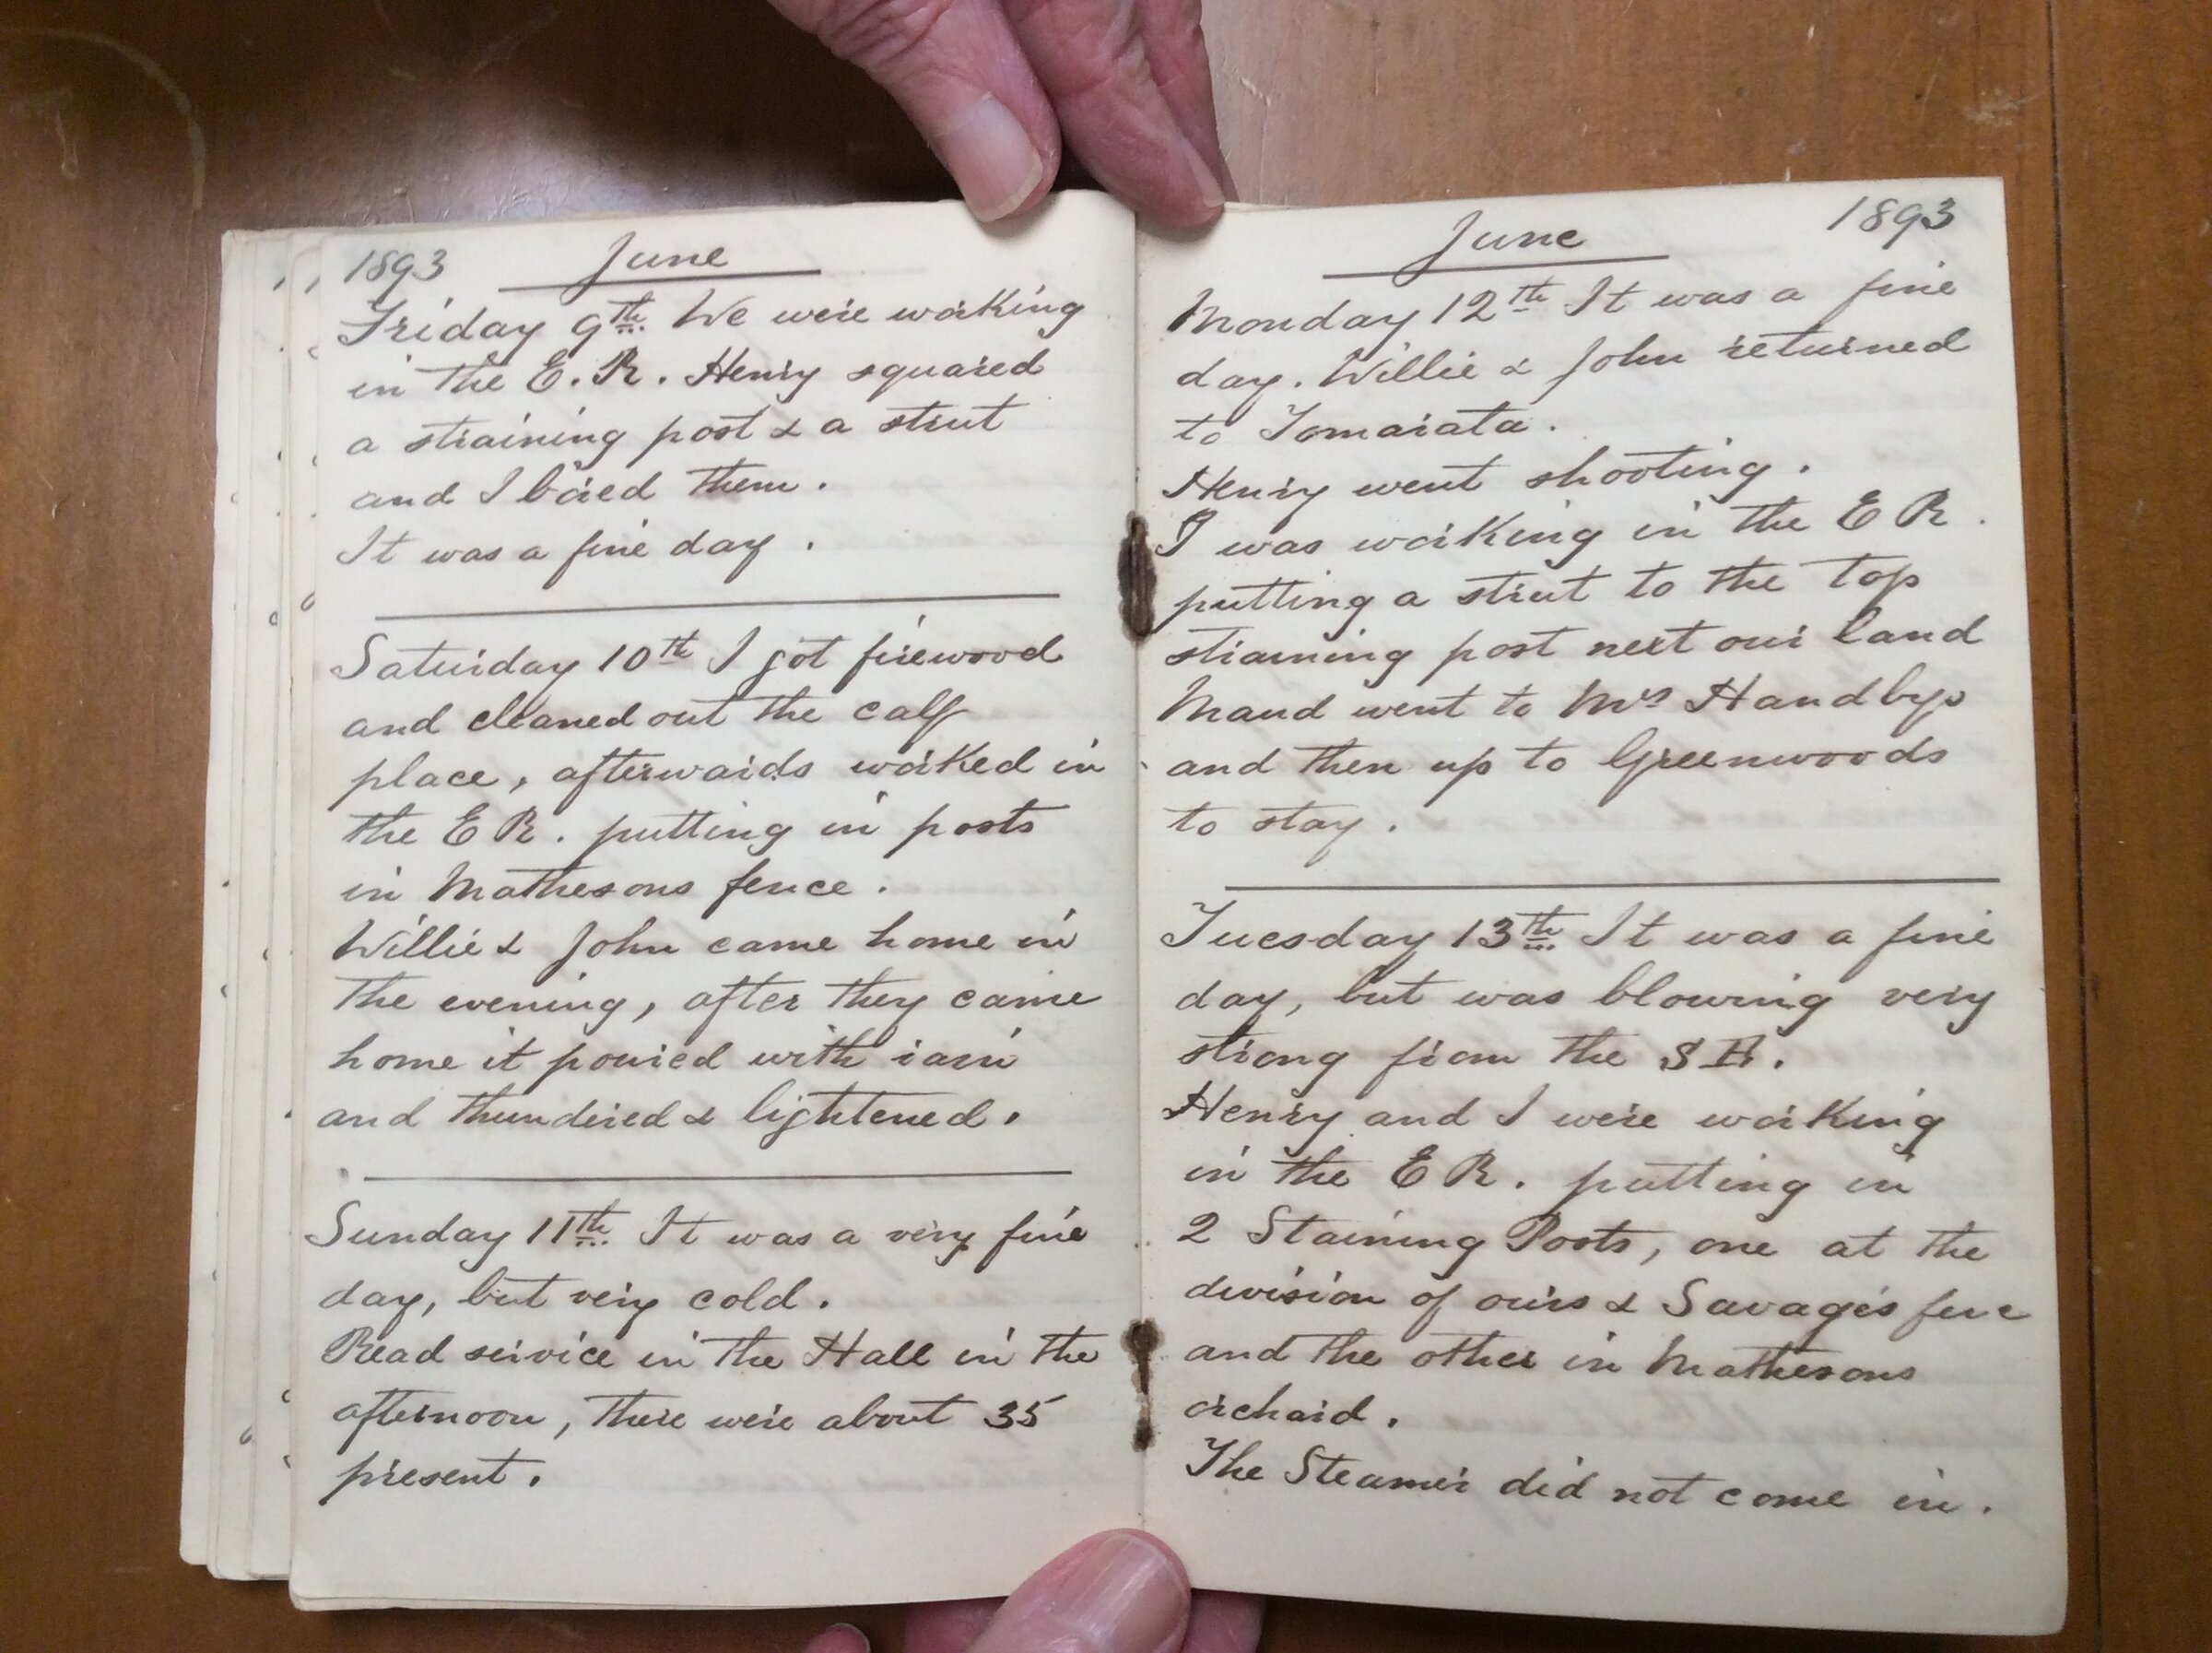 1893 June
Friday 9th. We were working
in the E. R. Henry squared
a straining post & a strut
and I bored them.
It was a fine day.
Saturday 10th I got firewood
and cleaned out the calf
place, afterwards worked in
the E R. putting in posts
in Mathesons fence.
Willie & John came home in
the evening, after they came
home it poured with rain
and thundered & lightened.
Sunday 11th. It was a very fine
day, but very cold.
Read service in the Hall in the
afternoon, there were about 35
present.
June 1893
Monday 12th It was a fine
day. Willie & John returned
to Tomarata.
Henry went shooting.
I was working in the E R.
putting a strut to the top
straining post next our land
Maud went to Mrs Handbys
and then up to Greenwoods
to stay.
Tuesday 13th. It was a fine
day, but was blowing very
strong from the S E.
Henry and I were working
in the E R. putting in
2 Staining Posts, one at the
division of ours & Savages fence
and the other in Mathesons
orchard.
The Steamer did not come in.